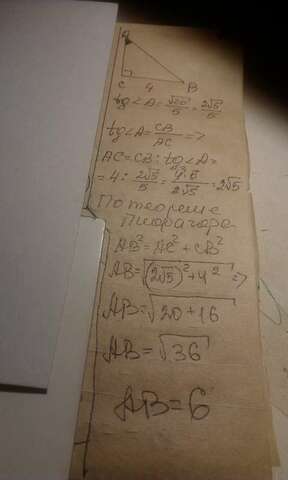 A
C 4 B
tg<A = √20/5 = 2√5/5
tg<A = CB/AC =>
AC = CB : tg<A =
= 4 : 2√5/5 = 4·5/2√5 = 2√5
По теореме
Пифагора
AB² = AC² + CB²
AB = √(2√5)² + 4² =>
AB = √20 + 16
AB = √36
AB = 6